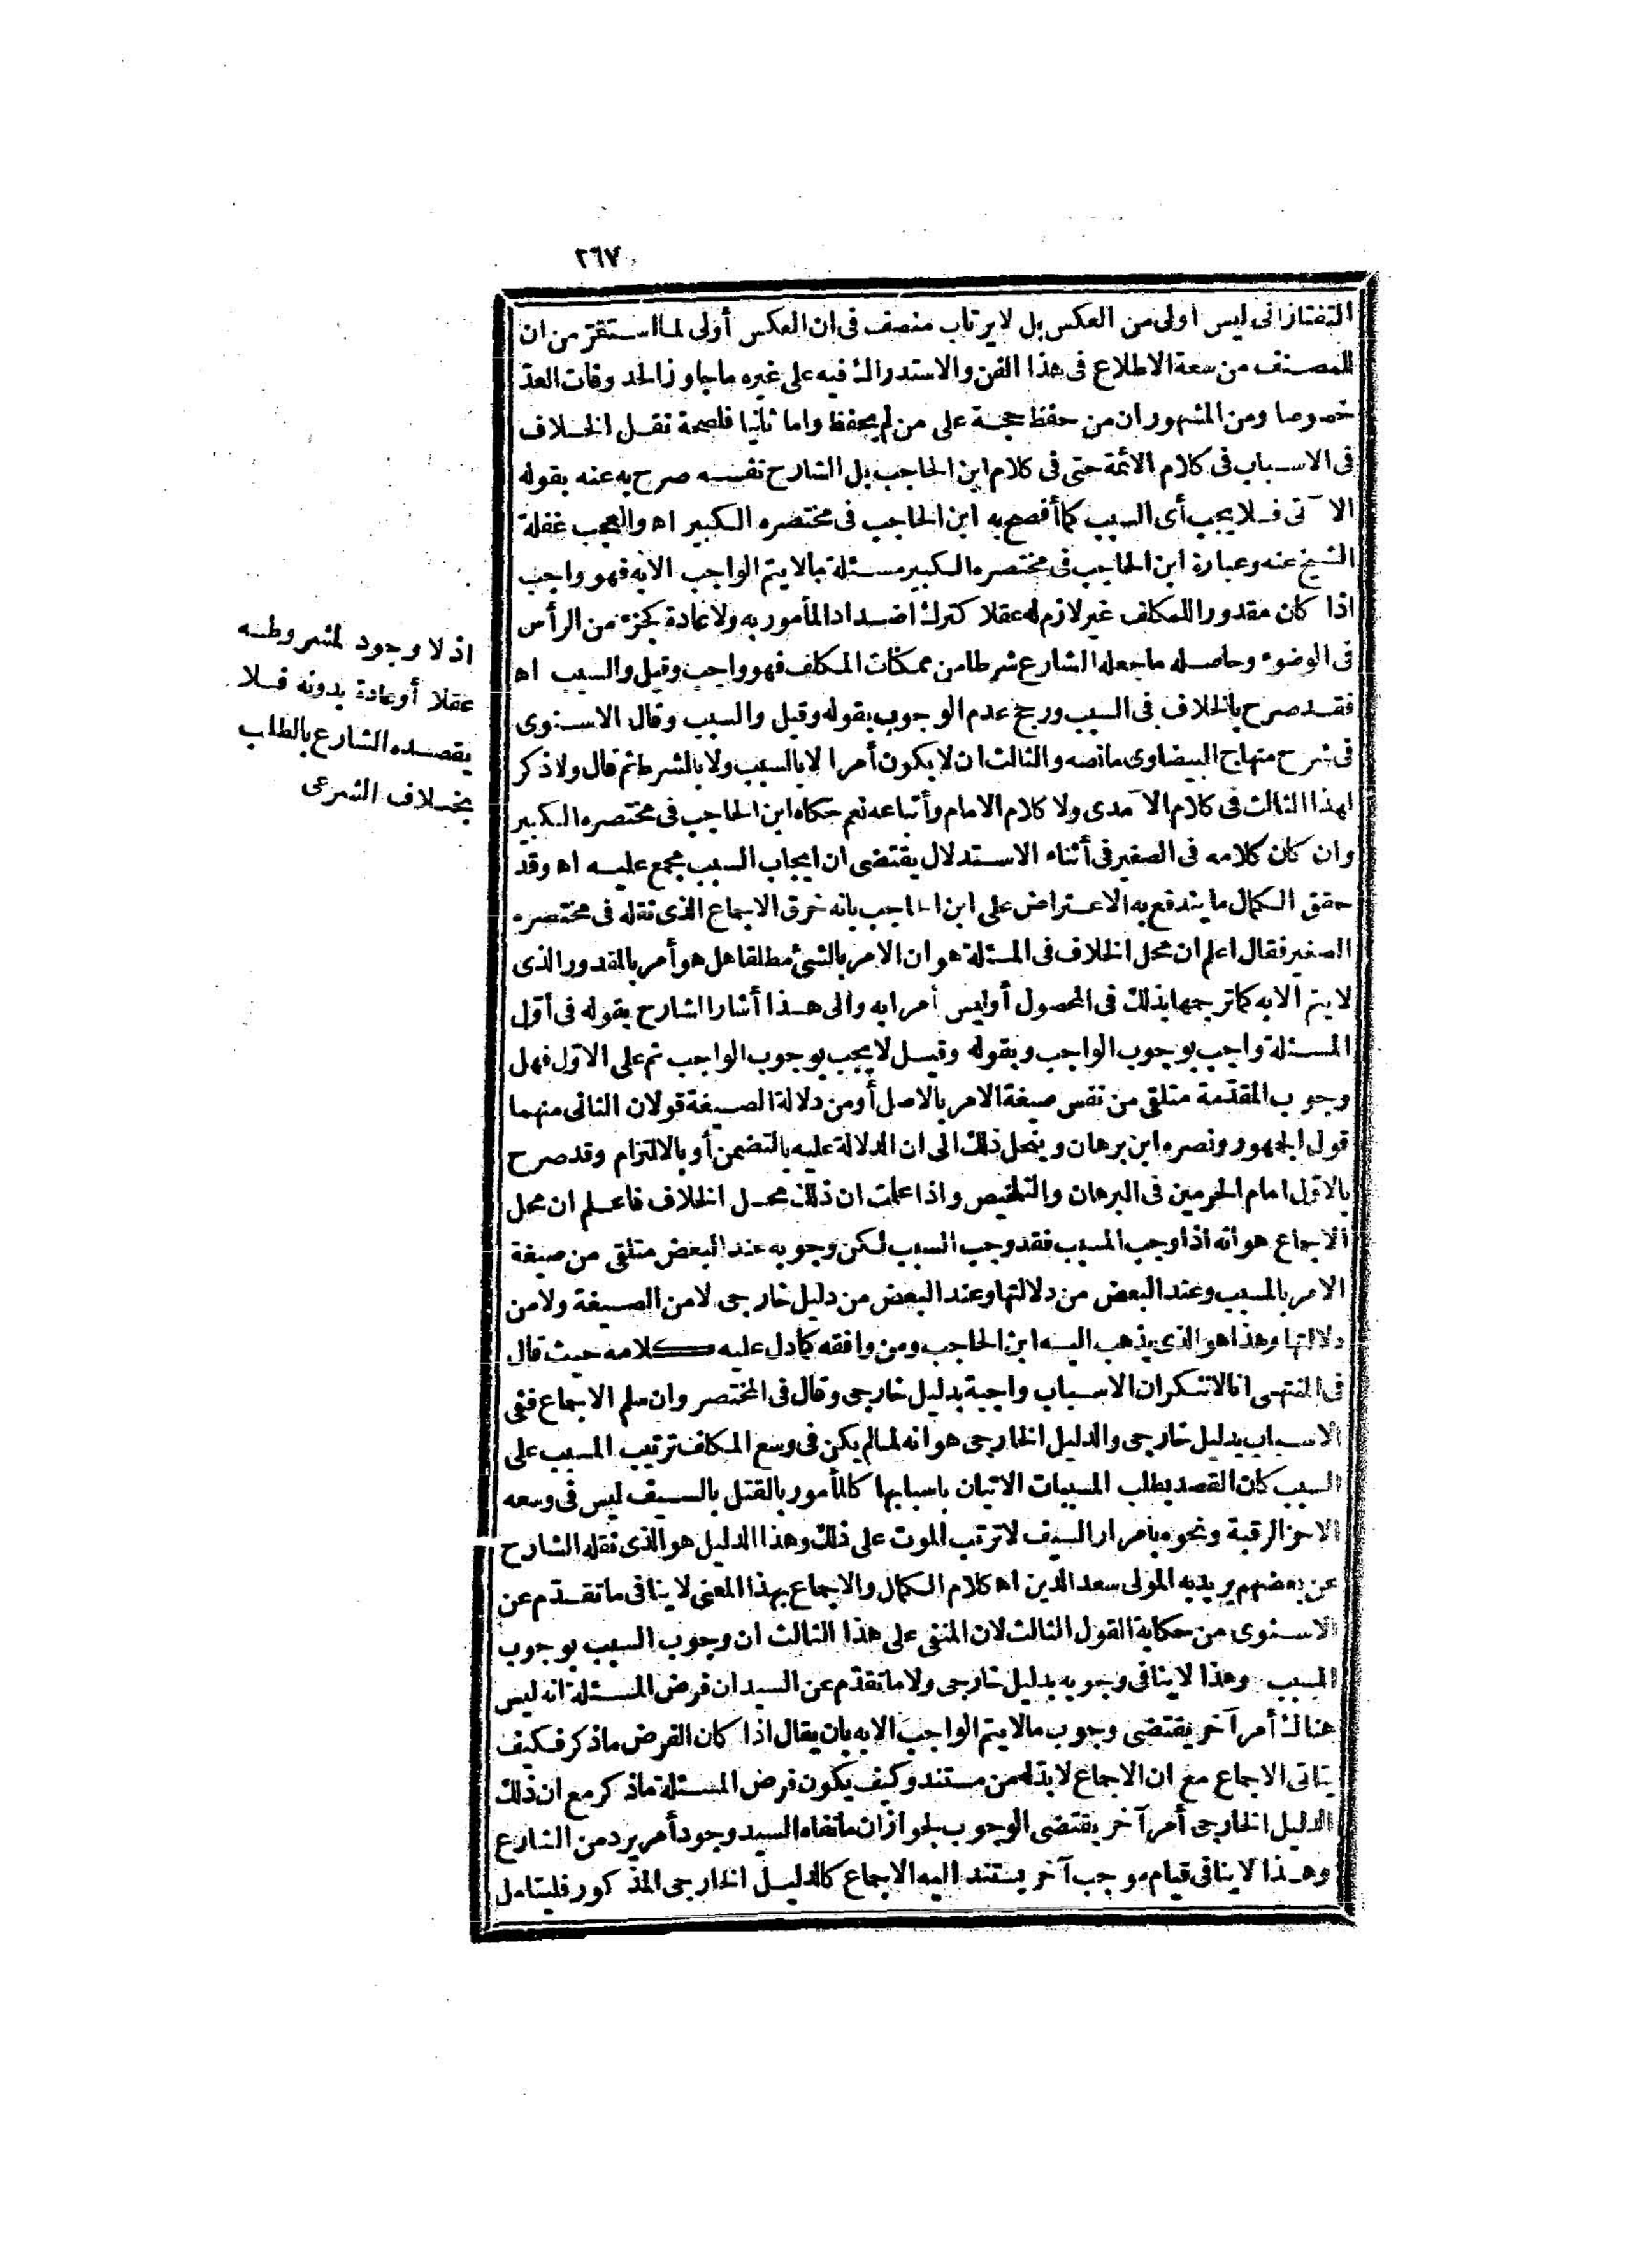 ٢٦٧
التفتازانى ليس أولى من العكس بل لا يرتاب منصف فى ان العكس أولى لما استقر من ان
للمصنف من سعة الاطلاع فى هذا الفن والاستدراك فيه على غيره ما جاوز الحد وفات العد
خصوصا ومن المشهور ان من حفظ حجة على من لم يحفظ واما ثانيا فلصحة نقل الخلاف
فى الاسباب فى كلام الائمة حتى فى كلام ابن الحاجب بل الشارح نفسه صرح به عنه بقوله
الآتى فلا يجب أى السبب كما أفصح به ابن الحاجب فى مختصره الكبير اه والعجب غفلة
الشيخ عنه وعبارة ابن الحاجب فى مختصره الكبير مسئلة مالا يتم الواجب الا به فهو واجب
اذا كان مقدورا للمكلف غير لازم له عقلا كترك اضداد المأمور به ولا عادة كجزء من الرأس
فى الوضوء وحاصله ما جعله الشارع شرطا من ممكنات المكلف فهو واجب وقيل والسبب اه
فقد صرح بالخلاف فى السبب ورجح عدم الوجوب بقوله وقيل والسبب وقال الاسنوى
فى شرح منهاج البيضاوى مانصه والثالث ان لا يكون أمرا لا بالسبب ولا بالشرط ثم قال ولا ذكر
لهذا الثالث فى كلام الآمدى ولا كلام الامام وأتباعه نعم حكاه ابن الحاجب فى مختصره الكبير
وان كان كلامه فى الصغير فى أثناء الاستدلال يقتضى ان ايجاب السبب مجمع عليه اه وقد
حقق الكمال ما يندفع به الاعتراض على ابن الحاجب بانه خرق الاجماع الذى نقله فى مختصره
الصغير فقال اعلم ان محل الخلاف فى المسئلة هو ان الامر بالشئ مطلقا هل هو أمر بالمقدور الذى
لا يتم الا به كما ترجمها بذلك فى المحصول أوليس أمرا به والى هذا أشار الشارح بقوله فى أول
المسئلة واجب بوجوب الواجب وبقوله وقيل لا يجب بوجوب الواجب ثم على الاول فهل
وجوب المقدمة متلقى من نفس صيغة الامر بالاصل أو من دلالة الصيغة قولان الثانى منهما
قول الجمهور ونصره ابن برهان وينحل ذلك الى ان الدلالة عليه بالتضمن أو بالالتزام وقد صرح
بالاول امام الحرمين فى البرهان والتلخيص واذا علمت ان ذلك محل الخلاف فاعلم ان محل
الاجماع هو انه اذا وجب المسبب فقد وجب السبب لكن وجوبه عند البعض متلقى من صيغة
الامر بالمسبب وعند البعض من دلالتها وعند البعض من دليل خارجى لا من الصيغة ولا من
دلالتها وهذا هو الذى يذهب اليه ابن الحاجب ومن وافقه كما دل عليه كلامه حيث قال
فى المنتهى انا لا ننكر ان الاسباب واجبة بدليل خارجى وقال فى المختصر وان سلم الاجماع ففى
الاسباب بدليل خارجى والدليل الخارجى هو انه لما لم يكن فى وسع المكلف ترتيب المسبب على
السبب كان القصد بطلب المسببات الاتيان باسبابها كالمأمور بالقتل بالسيف ليس فى وسعه
الا حز الرقبة ونحوه بامرار السيف لا ترتب الموت على ذلك وهذا الدليل هو الذى نقله الشارح
عن بعضهم يريد به المولى سعد الدين اه كلام الكمال والاجماع بهذا المعنى لا ينافى ما تقدم عن
الاسنوى من حكاية القول الثالث لان المنفى على هذا الثالث ان وجوب السبب بوجوب
المسبب وهذا لا ينافى وجوبه بدليل خارجى ولا ما تقدم عن السيد ان فرض المسئلة انه ليس
هناك أمر آخر يقتضى وجوب مالا يتم الواجب الا به بان يقال اذا كان الفرض ما ذكر فكيف
يتاتى الاجماع مع ان الاجماع لا بد له من مستند وكيف يكون فرض المسئلة ما ذكر مع ان ذلك
الدليل الخارجى أمر آخر يقتضى الوجوب لجواز ان ما نفاه السيد وجود أمر يرد من الشارع
وهذا لا ينافى قيام موجب آخر يستند اليه الاجماع كالدليل الخارجى المذكور فليتامل
اذ لا وجود لمشروطه
عقلا أو عادة بدونه فلا
يقصده الشارع بالطلب
بخلاف الشرعى